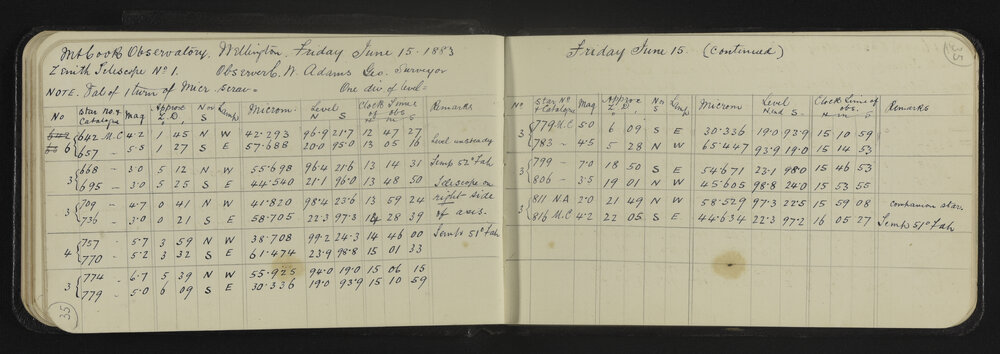 Mt Cook Observatory, Wellington Friday June 15. 1883
Zenith Telescope No 1. Observer C. W. Adams Geo. Surveyor
NOTE. Val of 1 turn of Micr screw = One div of level =
No Star No & Catalogue Mag Approx Z.D. N or S Lamp Microm: Level N S Clock Time of obs H m S Remarks
642 M.C 4.2 1 45 N W 42.293 96.9 21.7 12 47 27
6 657 - 5.5 1 27 S E 57.688 20.0 95.0 13 05 16 Level unsteady
668 - 3.0 5 12 N W 55.698 96.4 21.6 13 14 31 Temp 52° Fah
3 695 - 3.0 5 25 S E 44.540 21.1 96.0 13 48 50 Telescope on
3 709 - 4.7 0 41 N W 41.820 98.4 23.6 13 59 24 right side
736 - 3.0 0 21 S E 58.705 22.3 97.3 14 28 39 of axis.
4 757 - 5.7 3 59 N W 38.708 99.2 24.3 14 46 00 Temp 51° Fah
770 - 5.2 3 32 S E 61.474 23.9 98.8 15 01 33
3 774 - 6.7 5 39 N W 55.925 94.0 19.0 15 06 15
779 - 5.0 6 09 S E 30.336 19.0 93.9 15 10 59
35
Friday June 15. (Continued)
35
No Star No & Catalogue Mag Approx Z.D. N or S Lamp Microm Level N and S. Clock Time of obs. H m S Remarks
3 779 M.C 5.0 6 09 S E 30.336 19.0 93.9 15 10 59
783 - 4.5 5 28 N W 65.447 93.9 19.0 15 14 53
3 799 - 7.0 18 50 S E 54.671 23.1 98.0 15 46 53
806 - 3.5 19 01 N W 45.605 98.8 24.0 15 53 55
3 811 N.A 2.0 21 49 N W 58.529 97.3 22.5 15 59 08 companion star
816 M.C 4.2 22 05 S E 44.634 22.3 97.2 16 05 27 Temp 51° Fah